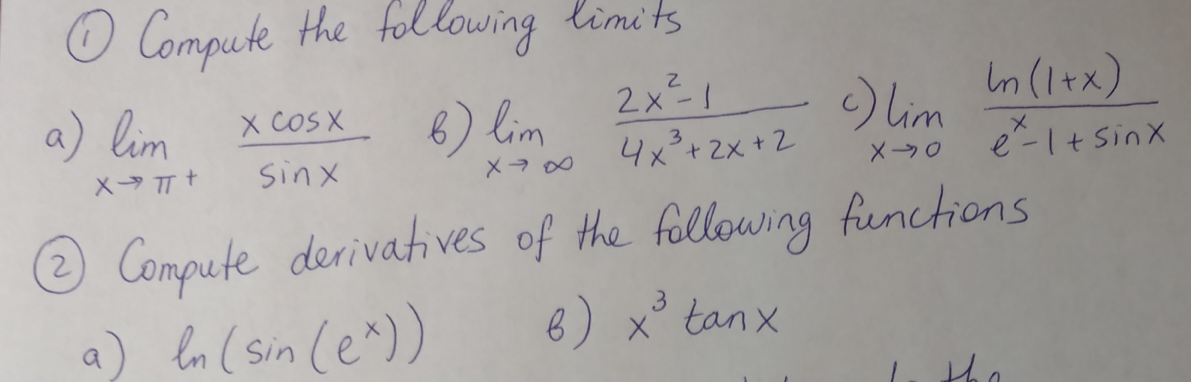 ① Compute the following limits
a) lim x→π+ (x cos x)/(sin x) в) lim x→∞ (2x²-1)/(4x³+2x+2) c) lim x→0 (ln(1+x))/(eˣ-1+sin x)
② Compute derivatives of the following functions
a) ln(sin(eˣ)) в) x³ tan x
the